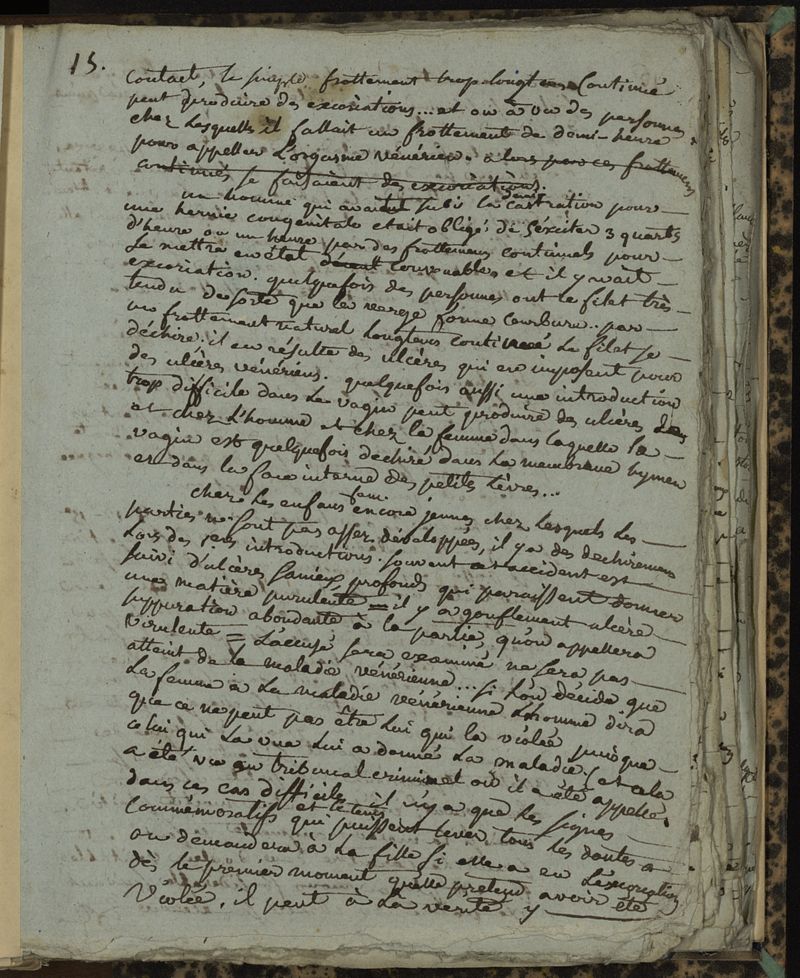 15.
contact, le simple frottement trop longtems continué
peut produire des excoriations... et on à vu des personnes
chez lesquelles il fallait un frottement de demi-heure
pour appeller l'orgasme vénérien. alors par ces frottemens
continues se faisaient des excoriations.
un homme qui avait subit la castration pour
une hernie congenitale etait obligé de s'exciter 3 quarts
d'heure ou un heure par des frottemens continuels pour
se mettre en état convenables et il y avait
excoriation. quelquefois des personnes ont le filet très-
tendu de sorte que la verge forme courbure.. par
un frottement naturel longtems continué le filet se
déchire. il en résulte des ulcères qui en imposent pour
des ulcères vénériens. quelquefois aussi une introduction
trop difficile dans le vagin peut produire des ulcères
et chez l'homme et chez la femme dans laquelle le
vagin est quelquefois dechiré dans la membrane hymen
et dans la face interne des petits lèvres...
chez les enfans fem. encore jeunes chez lesquels les
parties ne sont pas assez développées, il y a des dechiremens
lors des 1eres introductions. souvent cet accident est
suivi d'ulcères sanieux, profonds qui paraissent donner
une matière purulente = il y a gonflement ulcère
suppuration abondante à la partie, qu'on appellera
virulente = L'accusé sera examiné ne sera pas
atteint de la maladie vénérienne... si l'on décide que
la femme à la maladie vénérienne l'homme dira
que ce ne peut pas être lui qui la violée puisque
celui qui l'a vue lui a donné la maladie. (et cela
a été vu au tribunal criminel où il a été appellé.
dans ces cas difficiles il n'y a que les signes
commémoratifs et le tems qui puissent lever tous les doutes =
on demandera à la fille si elle a eu l'excoriation
dès le premier moment qu'elle pretend avoir été
violée, il peut à la verité y